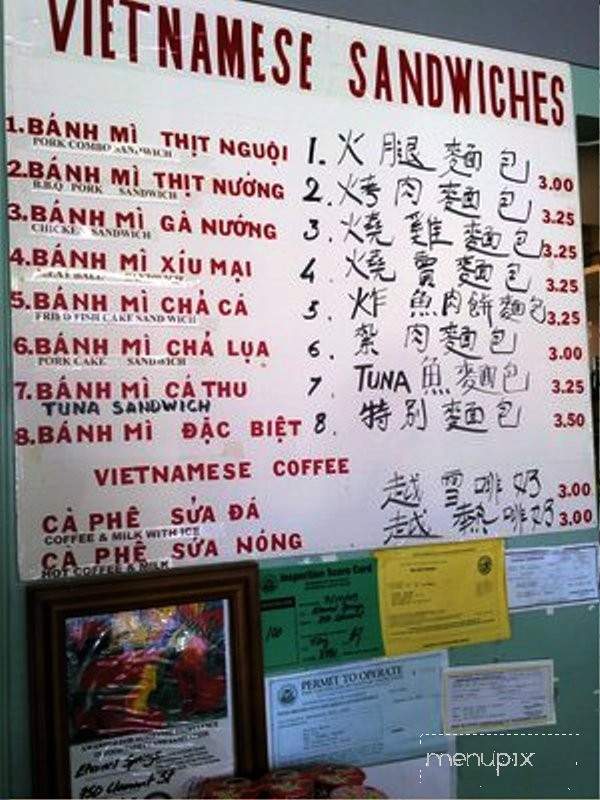 VIETNAMESE SANDWICHES
1.BÁNH MÌ THỊT NGUỘI 1. 火腿麵包 3.00
PORK COMBO SANDWICH
2.BÁNH MÌ THỊT NƯỚNG 2. 烤肉麵包 3.25
B.B.Q PORK SANDWICH
3.BÁNH MÌ GÀ NƯỚNG 3. 燒雞麵包 3.25
CHICKEN SANDWICH
4.BÁNH MÌ XÍU MẠI 4. 燒賣麵包 3.25
5.BÁNH MÌ CHẢ CÁ 5. 炸魚肉餅麵包 3.25
FRIED FISH CAKE SANDWICH
6.BÁNH MÌ CHẢ LỤA 6. 紮肉麵包 3.00
PORK CAKE SANDWICH
7.BÁNH MÌ CÁ THU 7. TUNA魚麵包 3.25
TUNA SANDWICH
8.BÁNH MÌ ĐẶC BIỆT 8. 特別麵包 3.50
VIETNAMESE COFFEE
CÀ PHÊ SỬA ĐÁ 越雪啡奶 3.00
COFFEE & MILK WITH ICE
CÀ PHÊ SỬA NÓNG 越熱啡奶 3.00
HOT COFFEE & MILK
Inspection Score Card
100
PERMIT TO OPERATE
950 Clement St
menupix